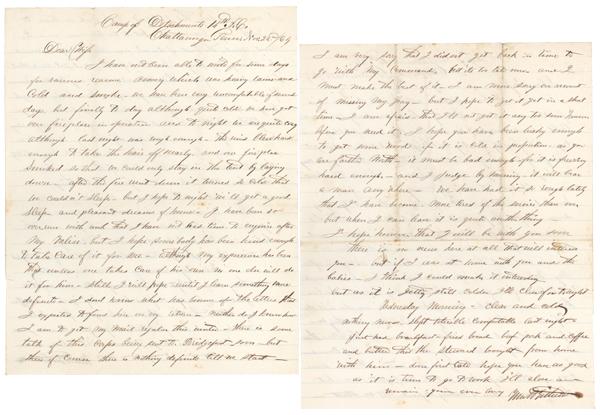 Camp of Detachments 14th A.C.
Chattanooga Tenn Nov 28th/64
Dear Wife
I have not been able to write for some days
for various reasons among which was heavy rains and
cold and smoke - we have been very uncomfortable for several
days but finally to day although quite cold we have got
our fireplace in operation and to night we are quite cozy
although last night was rough enough - The wind blew hard
enough to take the hair off nearly and our fireplace
smoked so that we could only stay in the tent by laying
down - after the fire went down it turned so cold that
we couldn't sleep - but I hope to night we'll get a good
sleep and pleasant dreams of home - I have been so
overrun with work that I have not had time to enquire after
my Valise - but I hope somebody has been kind enough
to take care of it for me - although my experience has been
that unless one takes care of his own no one else will do
it for him - Still I will hope until I learn something more
definite - I dont know what has become of the letters that
I expected to find here on my return - neither do I know how
I am to get my mail regular this winter - There is some
talk of this Corps being sent to Bridgeport soon - but
then of course there is nothing definite till we start -
I am very sorry that I did not get back in time to
go with my command, but it's too late now and I
must make the best of it - I am more sorry on account
of missing my pay - but I hope to get it yet in a short
time - I am afraid that I'll not get it any too soon
before you need it. I hope you have been lucky enough
to get some wood if it is cold in proportion as you
are farther North - it must be bad enough for it is freezing
hard enough - and I judge by morning it will bear
a man any where - We have had it so rough lately
that I have become more tired of the service than ever
but when I can leave it is quite another thing
I hope however that I will be with you soon
there is no news here at all that will interest
you - but if I was at home with you and the
babies - I think I could make it interesting
but as it is getting still colder I'll close for to night
Wednesday Morning - Clear and cold
nothing new. Slept tolerable comfortable last night -
just had breakfast - fried bread beef pork and coffee
and butter that the steward bought from home
with him - done first rate hope you have as good
as it is time to go to work I'll close and
remain yours ever